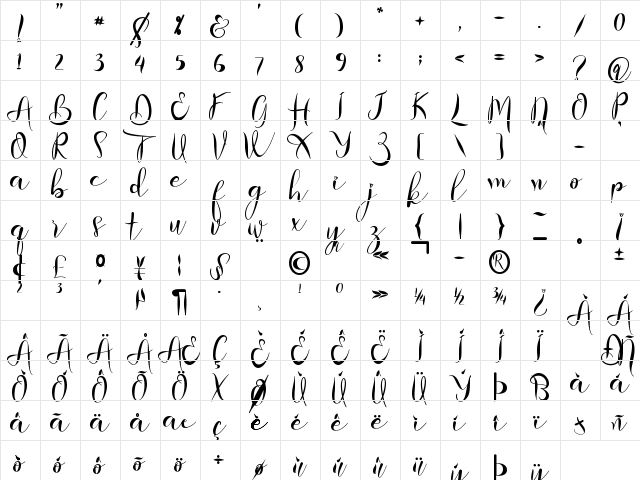 ! " # $ % & ' ( ) * + , - . / 0
1 2 3 4 5 6 7 8 9 : ; < = > ? @
A B C D E F G H I J K L M N O P
Q R S T U V W X Y Z [ \ ] -
a b c d e f g h i j k l m n o p
q r s t u v w x y z { | } ~ ¡
¢ £ ¤ ¥ ¦ § ¨ © « ¬ - ® ¯ ° ±
² ³ ´ µ ¶ · ¸ ¹ º » ¼ ½ ¾ ¿ À Á
 à Ä Å Æ Ç È É Ê Ë Ì Í Î Ï Ñ
Ò Ó Ô Õ Ö × Ø Ù Ú Û Ü Ý Þ ß à á
â ã ä å æ ç è é ê ë ì í î ï ð ñ
ò ó ô õ ö ÷ ø ù ú û ü ý þ ÿ